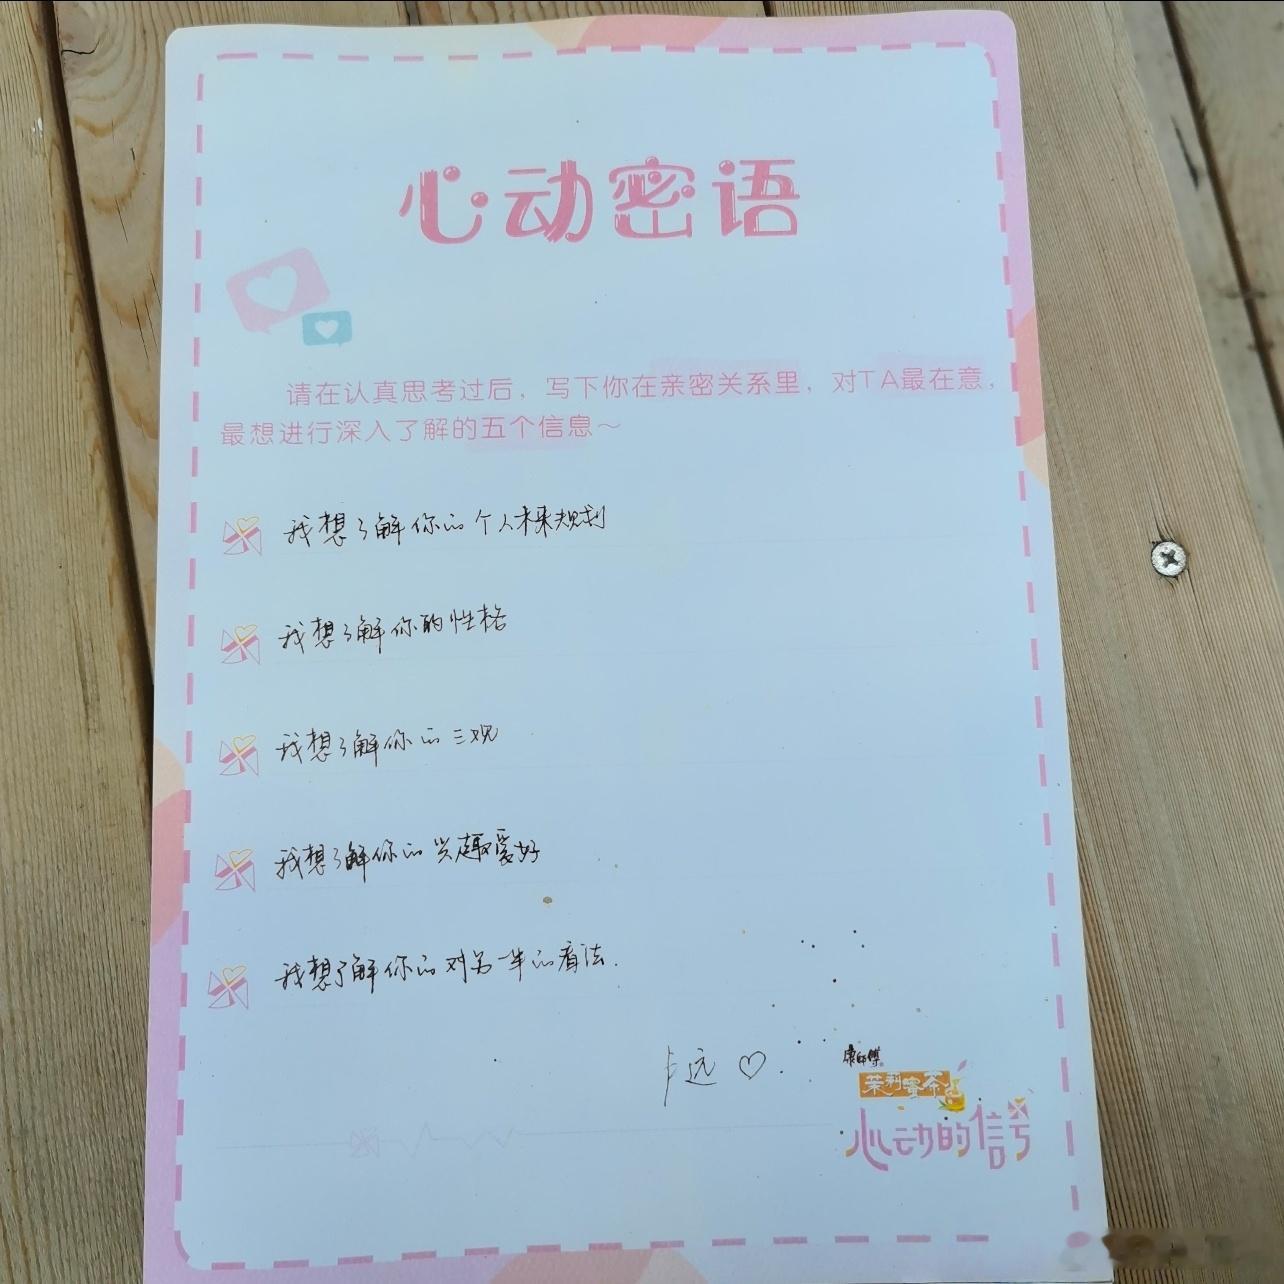 心动密语
请在认真思考过后，写下你在亲密关系里，对TA最在意，
最想进行深入了解的五个信息～
我想了解你的个人未来规划
我想了解你的性格
我想了解你的三观
我想了解你的兴趣爱好
我想了解你的对另一半的看法.
卢远♡.
康师傅
茉莉蜜茶
心动的信号